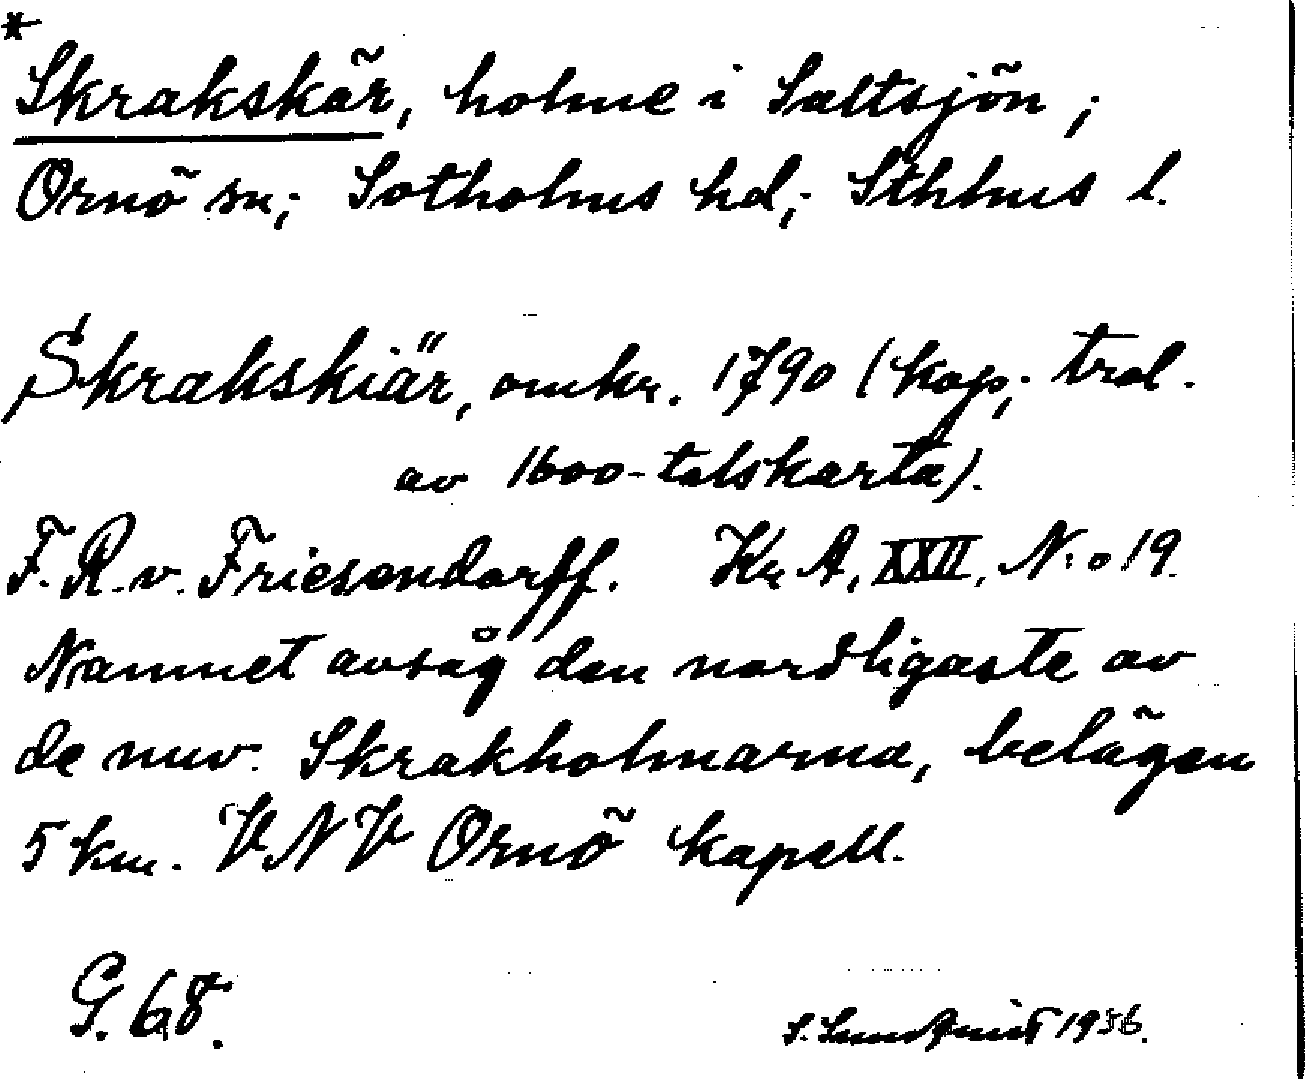 *
Skrakskär, holme i Saltsjön;
Ornö sn; Sotholms hd; Sthlms l.
Skrakskiär, omkr. 1790 (kop; trol.
av 1600-talskarta).
F. R. v. Friesendorff. Kr A, XXII, N:o 19.
Namnet avsåg den nordligaste av
de nuv. Skrakholmarna, belägen
5 km. VNV Ornö kapell.
G. 68.
S. Lundquist 1936.